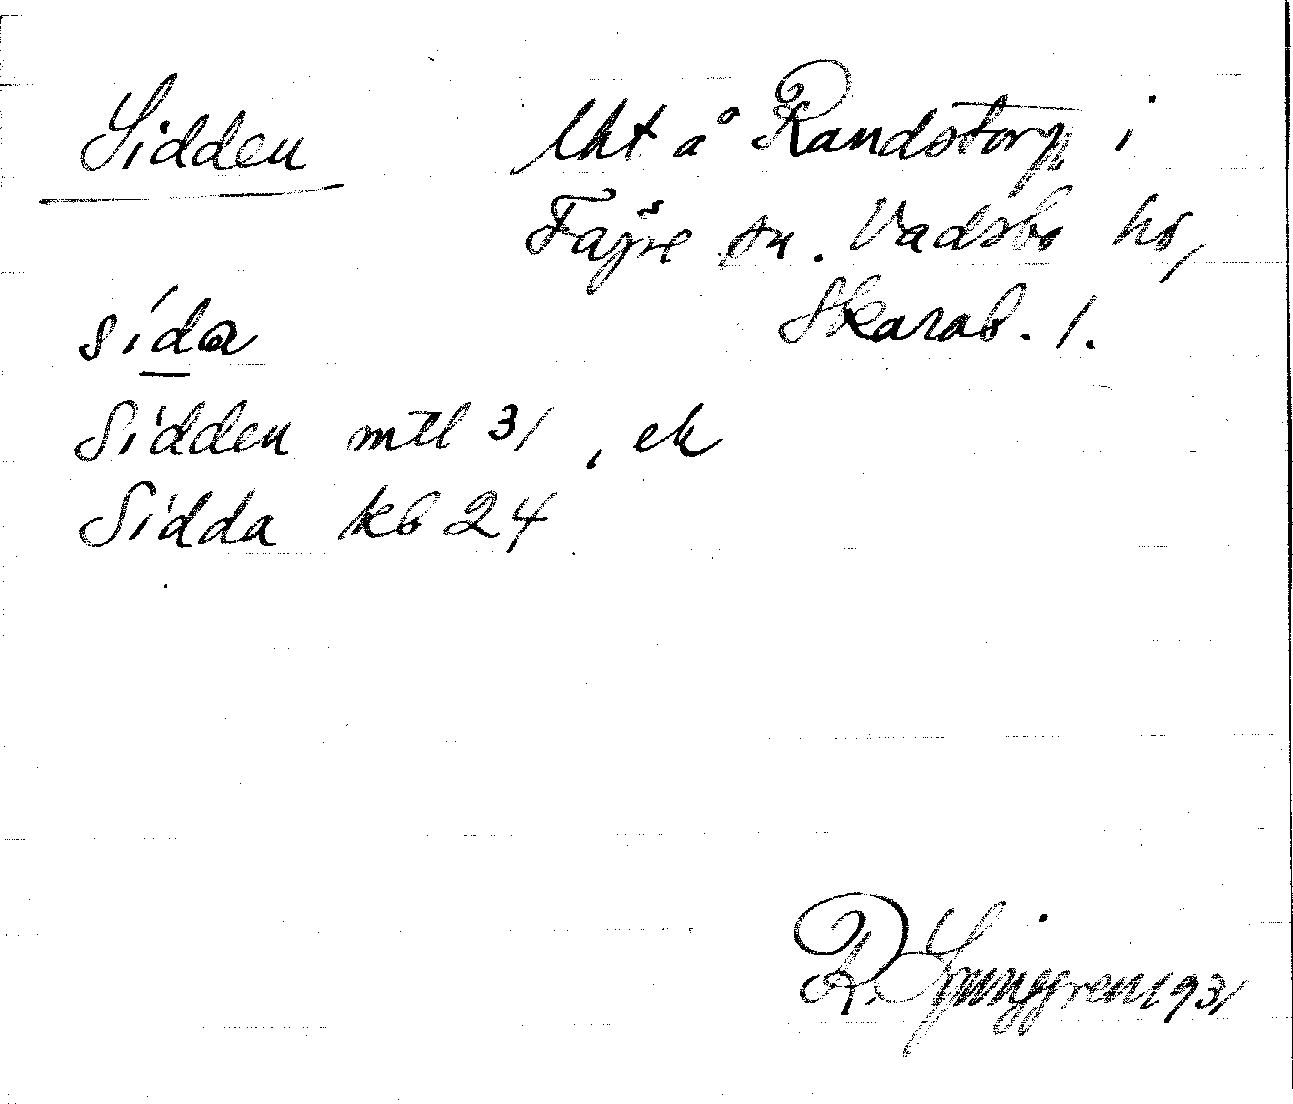 Sidden
lht å Randstorp i
Fägre sn. Vadsbo hd,
Skarab. l.
sida
Sidden mtl 31, ek
Sidda kb 24
R. Ljunggren 1931